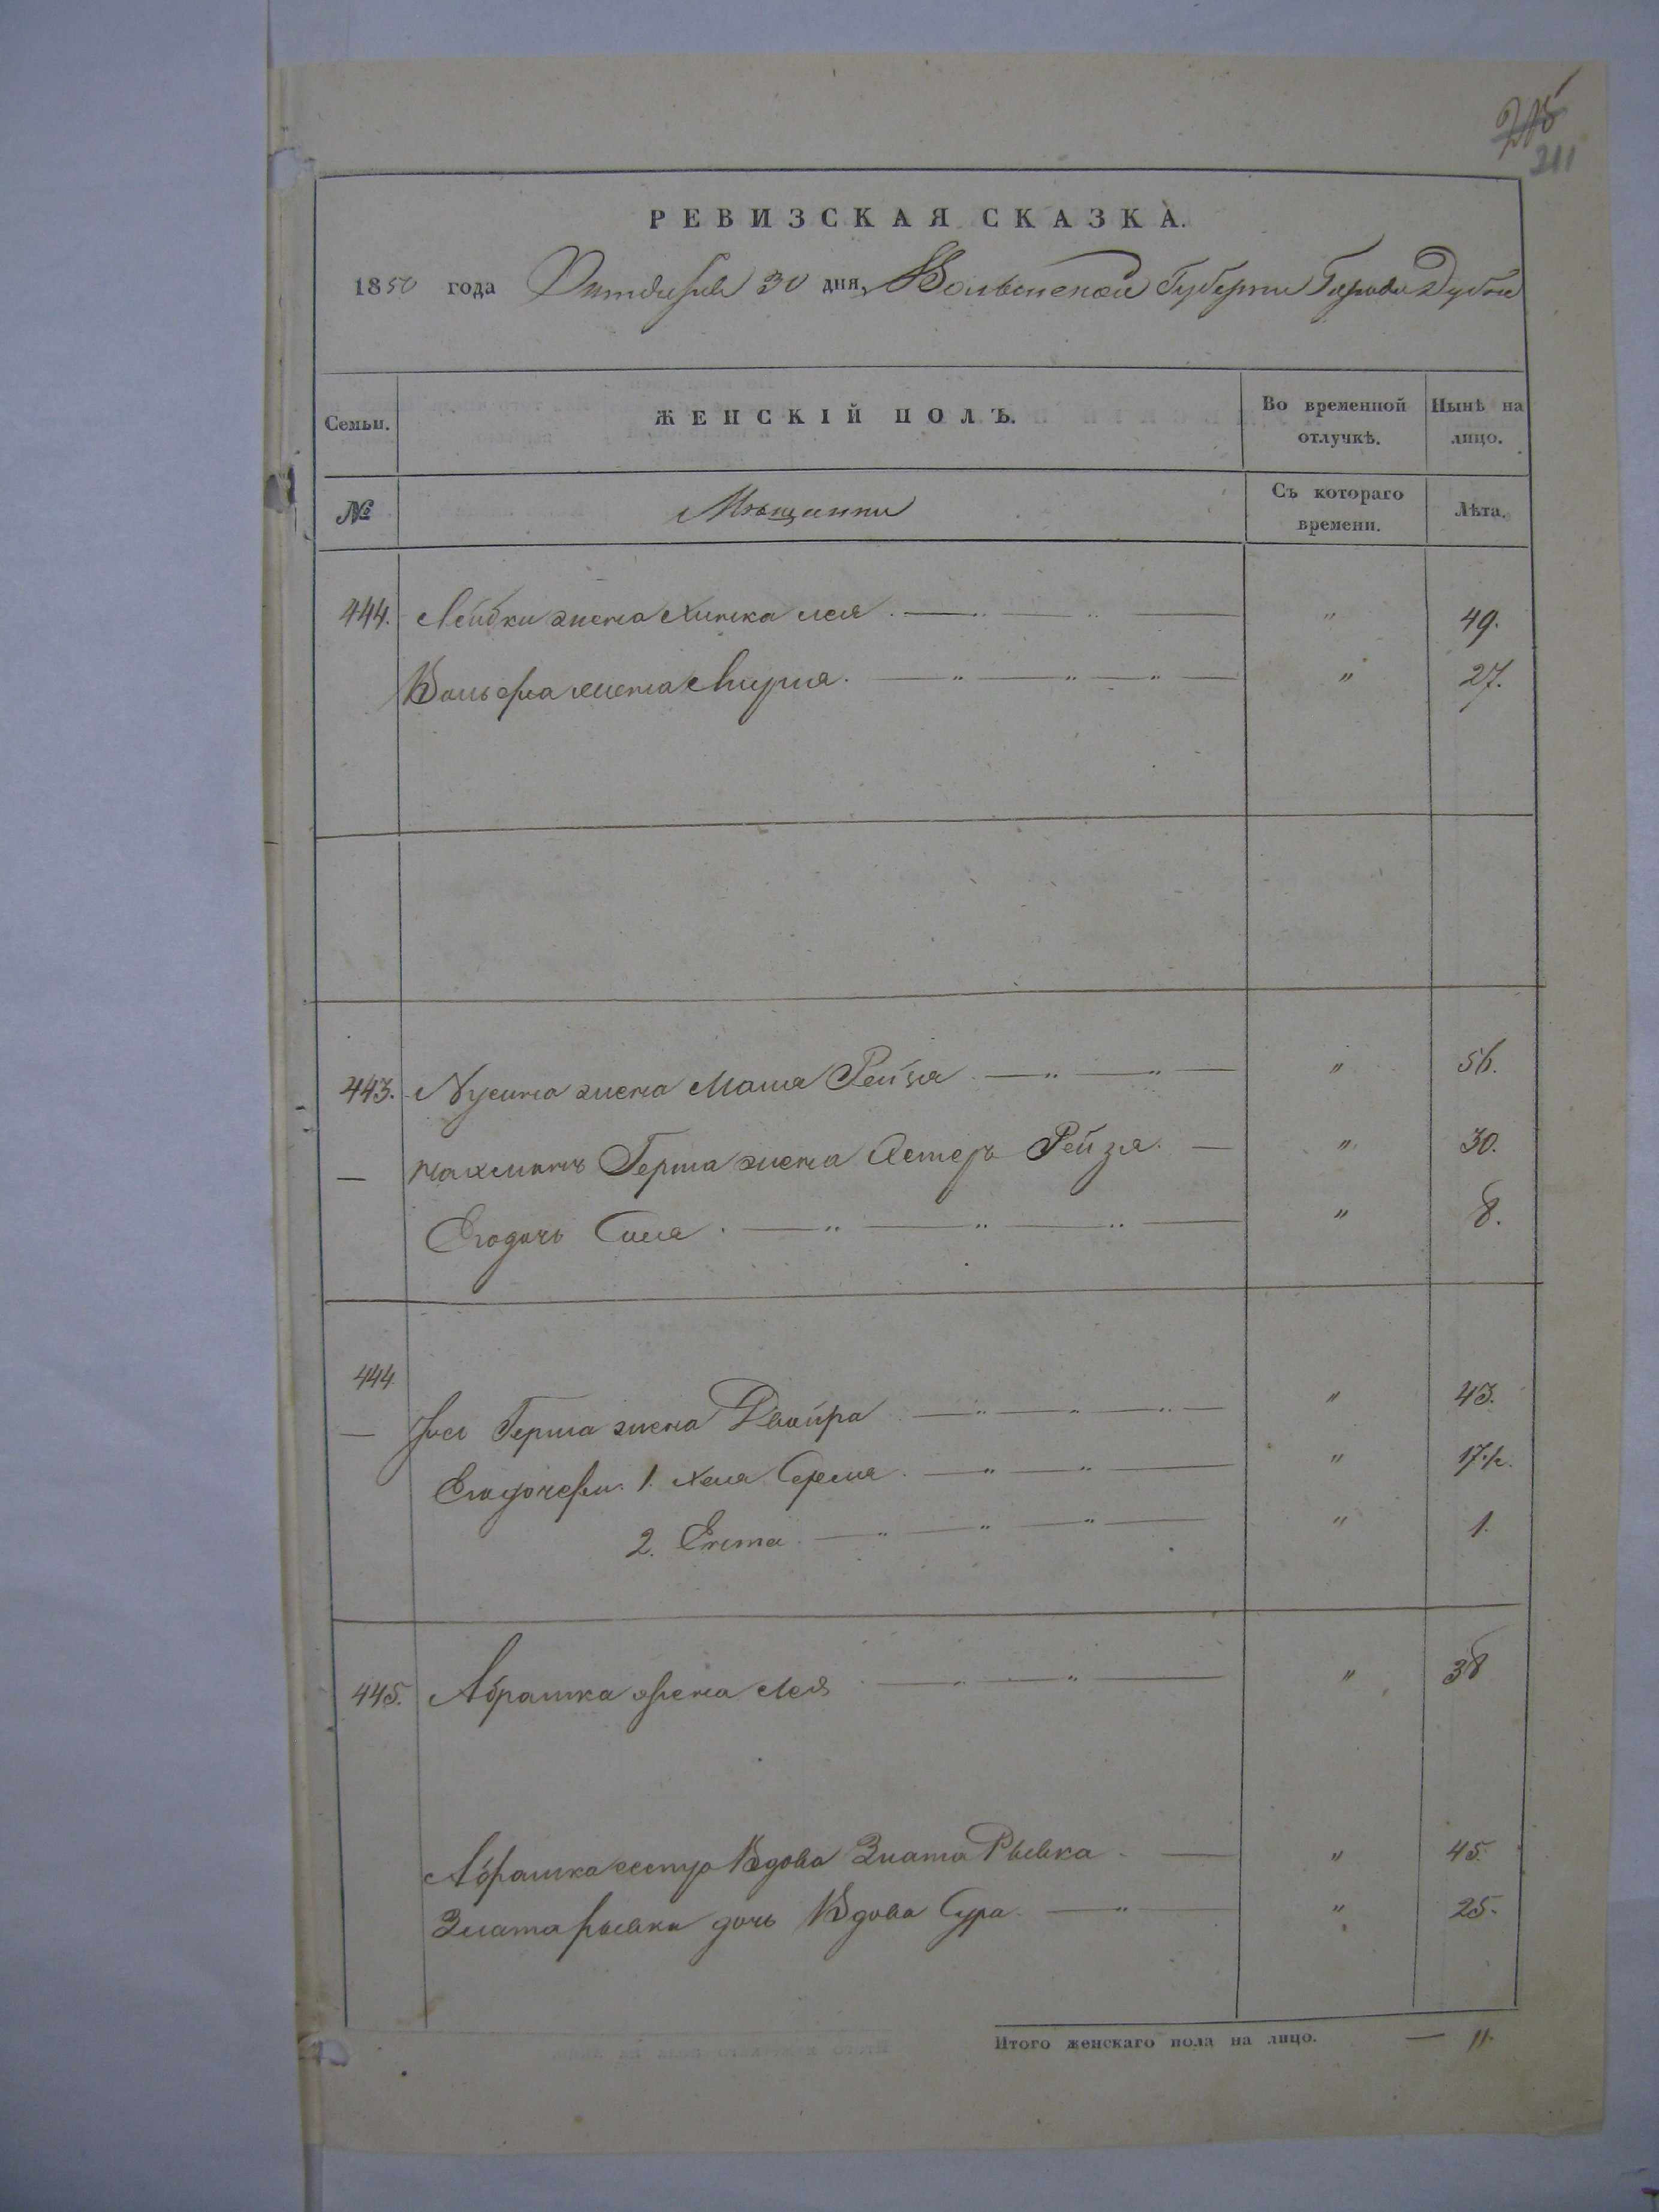 211
РЕВИЗСКАЯ СКАЗКА.
1850 года Октября 30 дня, Волынской Губернии Города Дубна
Семьи.
ЖЕНСКІЙ ПОЛЪ.
Во временной отлучкѣ.
Нынѣ на лицо.
№
Мѣщанки
Съ котораго времени.
Лѣта.
444. Лейбки жена Хинка Лея. " 49.
Вольфа жена Мирля. " 27.
443. Нусина жена Маша Рейзя " 56.
— Нахманъ Герша жена Хестеръ Рейзя. " 30.
Его дочь Сима. " 8.
444
— Иос Герша жена Двойра " 43.
Его дочери. 1. Хая Сурля. " 17½.
2. Ента. " 1.
445. Абрашка жена Лея " 38
Абрашка сестра Вдова Злата Рывка. " 45.
Злата Рывки дочь Вдова Сура. " 25.
Итого женскаго пола на лицо. — 11.